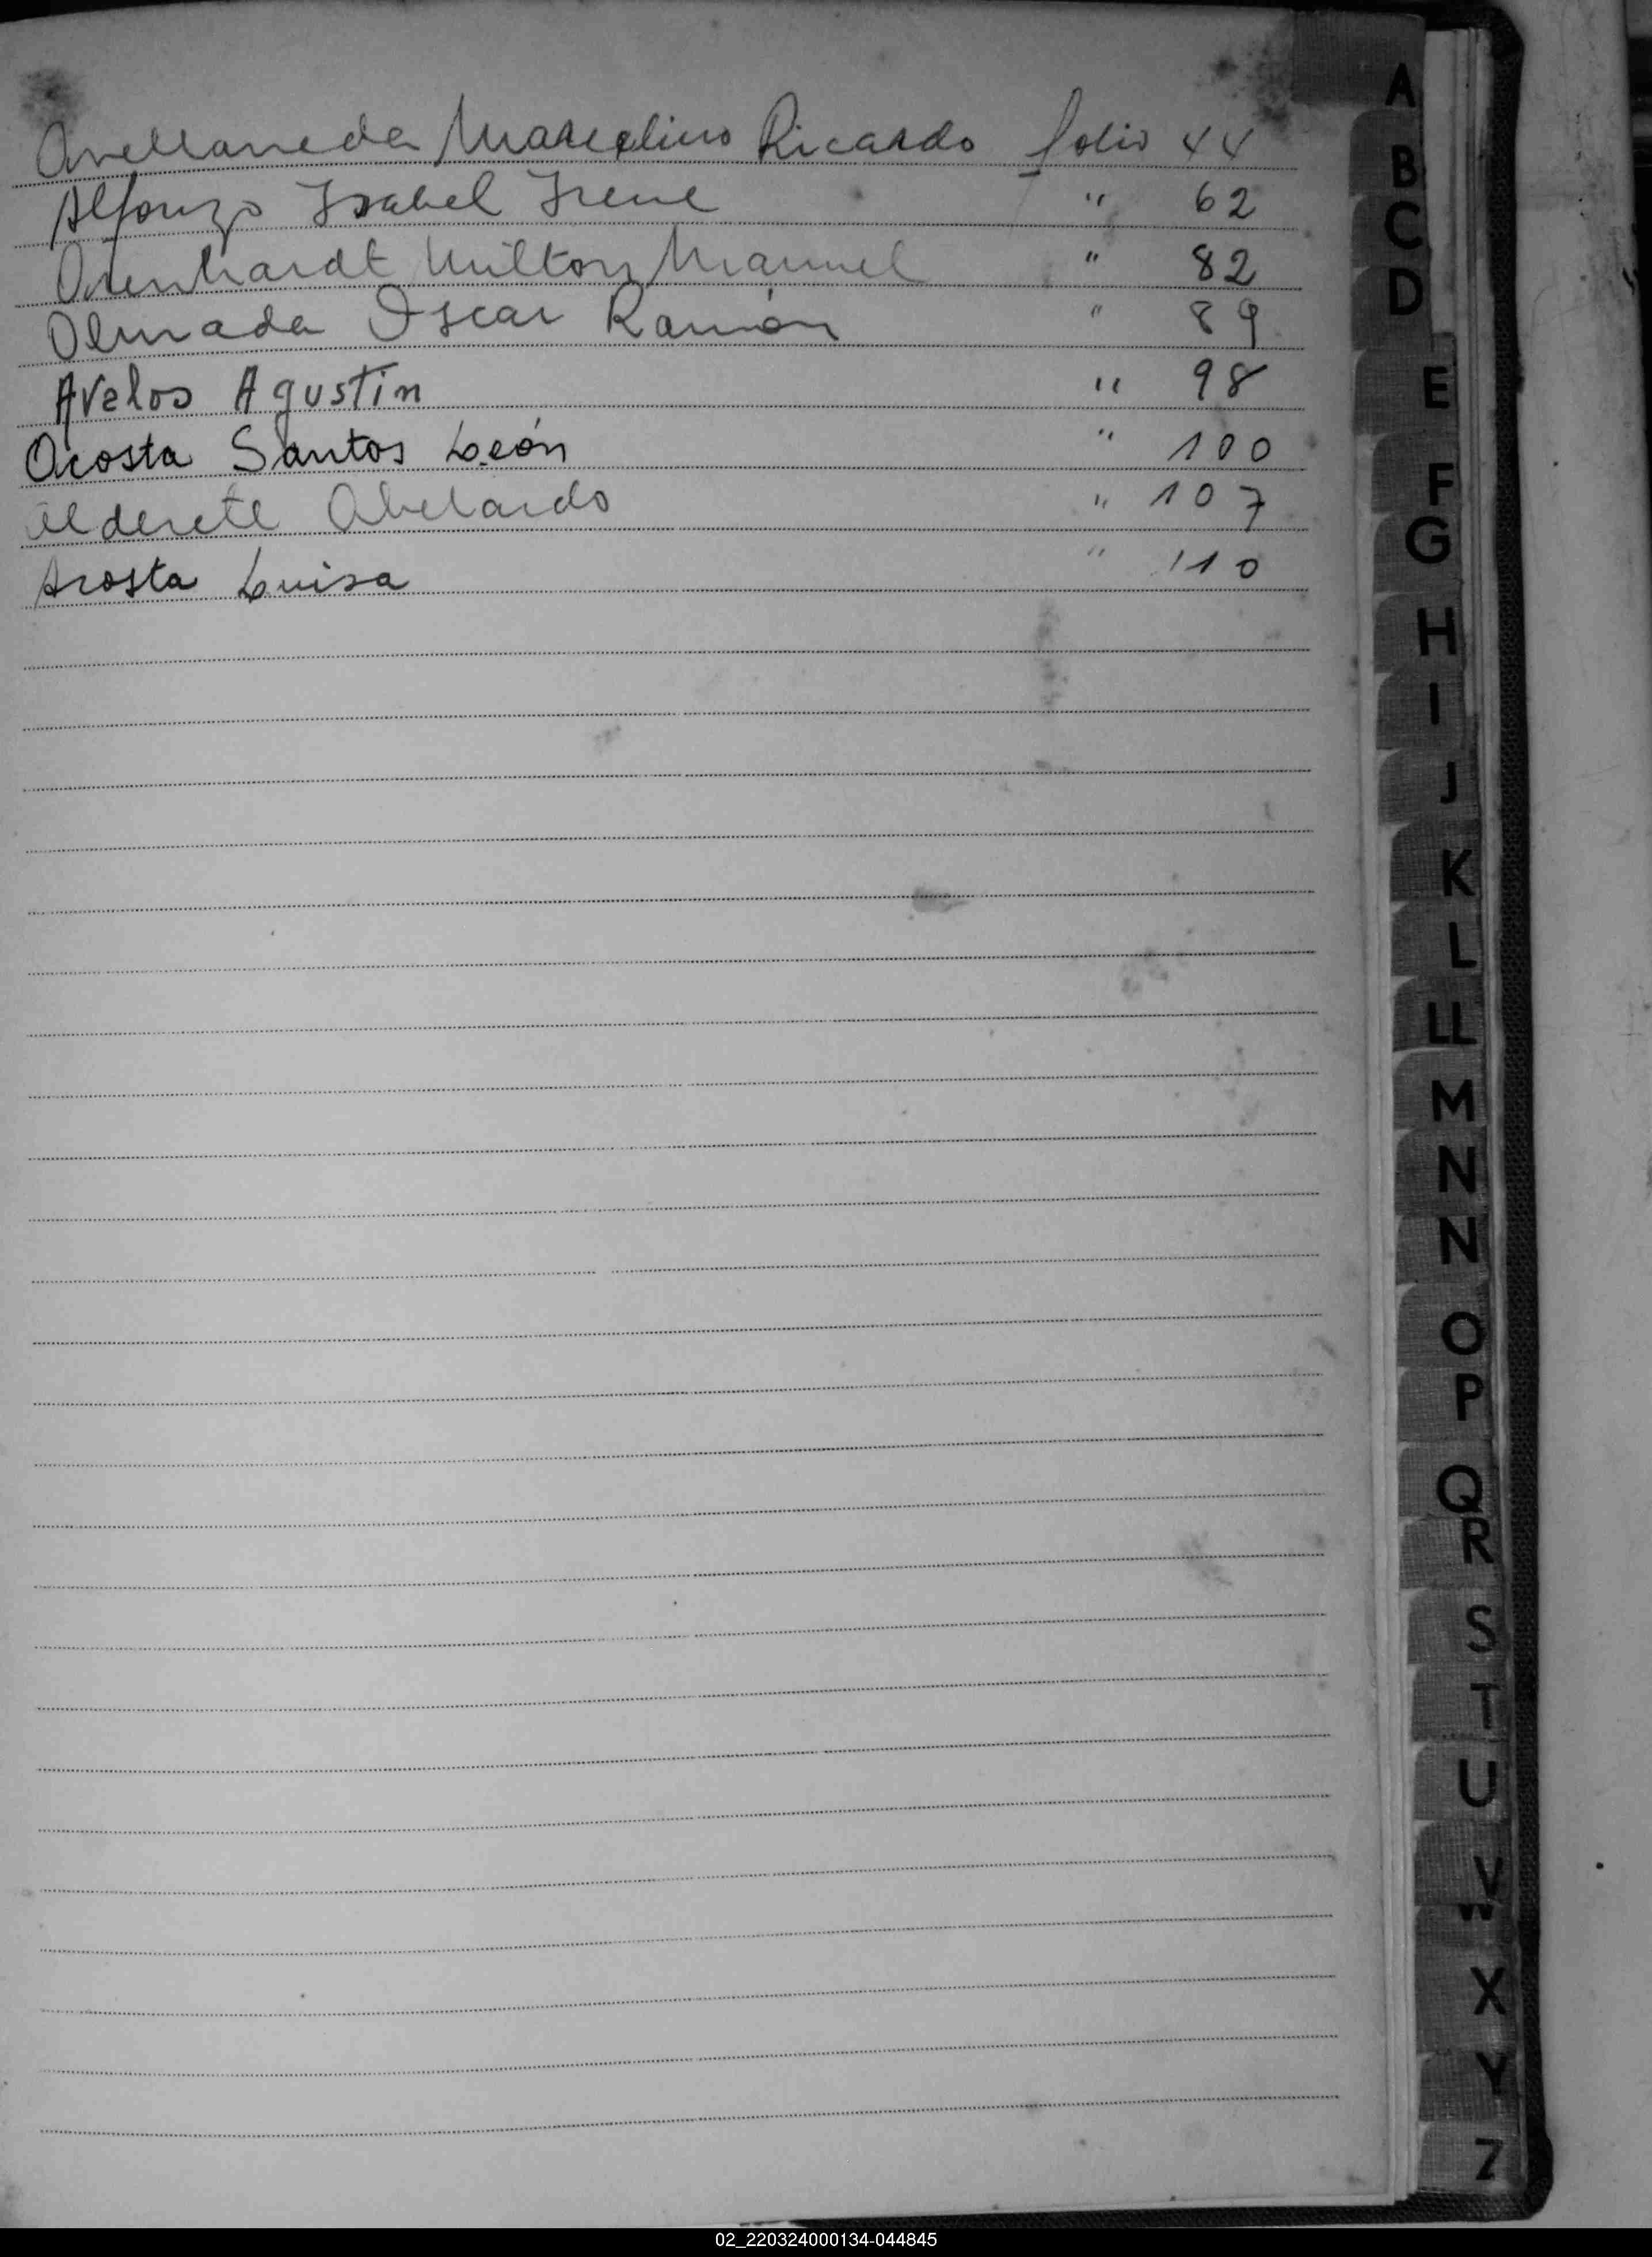 Avellaneda Marcelino Ricardo folio 44
Alfonzo Isabel Irene " 62
Milton Manuel " 82
Almada Oscar Ramón " 89
Avelos Agustín " 98
Acosta Santos León " 100
Alderete Abelardo " 107
Acosta Luisa " 110
A
B
C
D
E
F
G
H
I
J
K
L
LL
M
N
N
O
P
Q
R
S
T
U
V
W
X
Y
Z
02_220324000134-044845